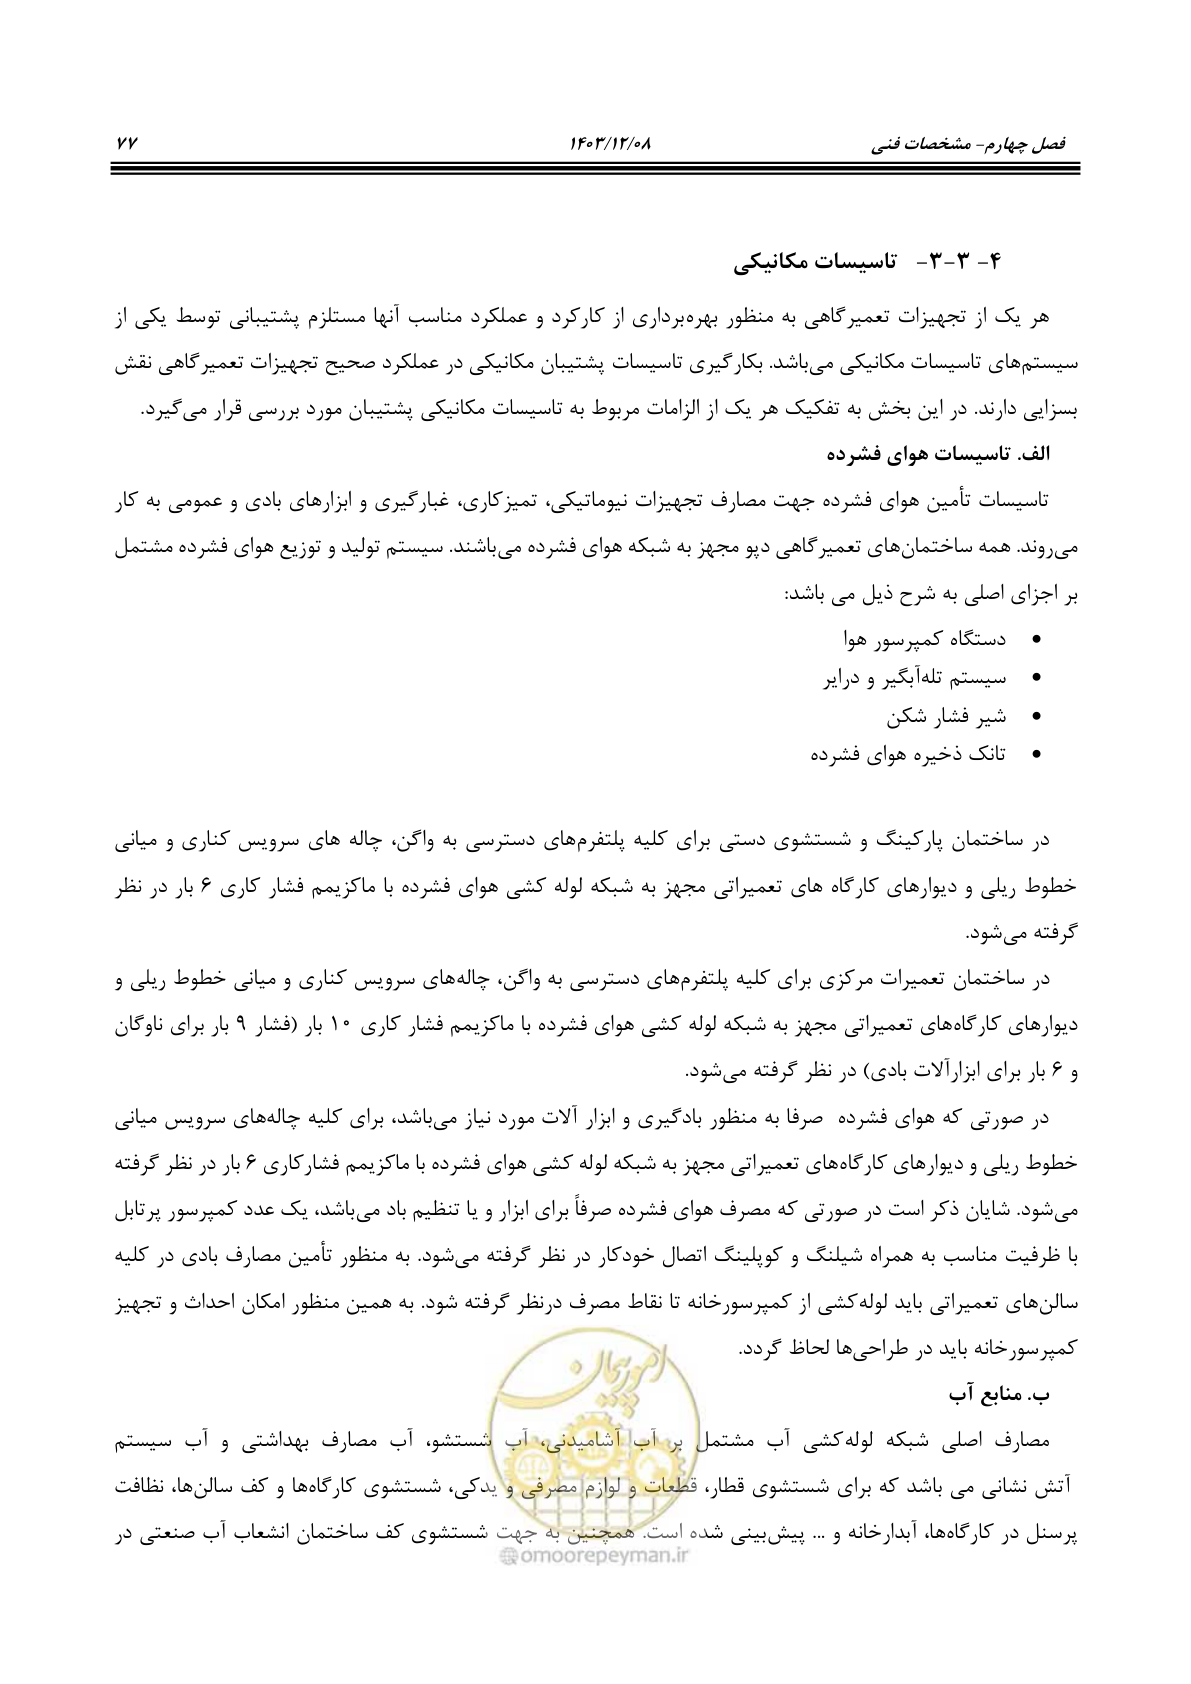 فصل چهارم- مشخصات فنی ۱۴۰۳/۱۲/۰۸ ۷۷
۴- ۳-۳- تاسیسات مکانیکی
هر یک از تجهیزات تعمیرگاهی به منظور بهره‌برداری از کارکرد و عملکرد مناسب آنها مستلزم پشتیبانی توسط یکی از
سیستم‌های تاسیسات مکانیکی می‌باشد. بکارگیری تاسیسات پشتیبان مکانیکی در عملکرد صحیح تجهیزات تعمیرگاهی نقش
بسزایی دارند. در این بخش به تفکیک هر یک از الزامات مربوط به تاسیسات مکانیکی پشتیبان مورد بررسی قرار می‌گیرد.
الف. تاسیسات هوای فشرده
تاسیسات تأمین هوای فشرده جهت مصارف تجهیزات نیوماتیکی، تمیزکاری، غبارگیری و ابزارهای بادی و عمومی به کار
می‌روند. همه ساختمان‌های تعمیرگاهی دپو مجهز به شبکه هوای فشرده می‌باشند. سیستم تولید و توزیع هوای فشرده مشتمل
بر اجزای اصلی به شرح ذیل می باشد:
• دستگاه کمپرسور هوا
• سیستم تله‌آبگیر و درایر
• شیر فشار شکن
• تانک ذخیره هوای فشرده
در ساختمان پارکینگ و شستشوی دستی برای کلیه پلتفرم‌های دسترسی به واگن، چاله های سرویس کناری و میانی
خطوط ریلی و دیوارهای کارگاه های تعمیراتی مجهز به شبکه لوله کشی هوای فشرده با ماکزیمم فشار کاری ۶ بار در نظر
گرفته می‌شود.
در ساختمان تعمیرات مرکزی برای کلیه پلتفرم‌های دسترسی به واگن، چاله‌های سرویس کناری و میانی خطوط ریلی و
دیوارهای کارگاه‌های تعمیراتی مجهز به شبکه لوله کشی هوای فشرده با ماکزیمم فشار کاری ۱۰ بار (فشار ۹ بار برای ناوگان
و ۶ بار برای ابزارآلات بادی) در نظر گرفته می‌شود.
در صورتی که هوای فشرده صرفا به منظور بادگیری و ابزار آلات مورد نیاز می‌باشد، برای کلیه چاله‌های سرویس میانی
خطوط ریلی و دیوارهای کارگاه‌های تعمیراتی مجهز به شبکه لوله کشی هوای فشرده با ماکزیمم فشارکاری ۶ بار در نظر گرفته
می‌شود. شایان ذکر است در صورتی که مصرف هوای فشرده صرفاً برای ابزار و یا تنظیم باد می‌باشد، یک عدد کمپرسور پرتابل
با ظرفیت مناسب به همراه شیلنگ و کوپلینگ اتصال خودکار در نظر گرفته می‌شود. به منظور تأمین مصارف بادی در کلیه
سالن‌های تعمیراتی باید لوله‌کشی از کمپرسورخانه تا نقاط مصرف درنظر گرفته شود. به همین منظور امکان احداث و تجهیز
کمپرسورخانه باید در طراحی‌ها لحاظ گردد.
ب. منابع آب
مصارف اصلی شبکه لوله‌کشی آب مشتمل بر آب آشامیدنی، آب شستشو، آب مصارف بهداشتی و آب سیستم
آتش نشانی می باشد که برای شستشوی قطار، قطعات و لوازم مصرفی و یدکی، شستشوی کارگاه‌ها و کف سالن‌ها، نظافت
پرسنل در کارگاه‌ها، آبدارخانه و ... پیش‌بینی شده است. همچنین به جهت شستشوی کف ساختمان انشعاب آب صنعتی در
امور پیمان
@omoorepeyman.ir